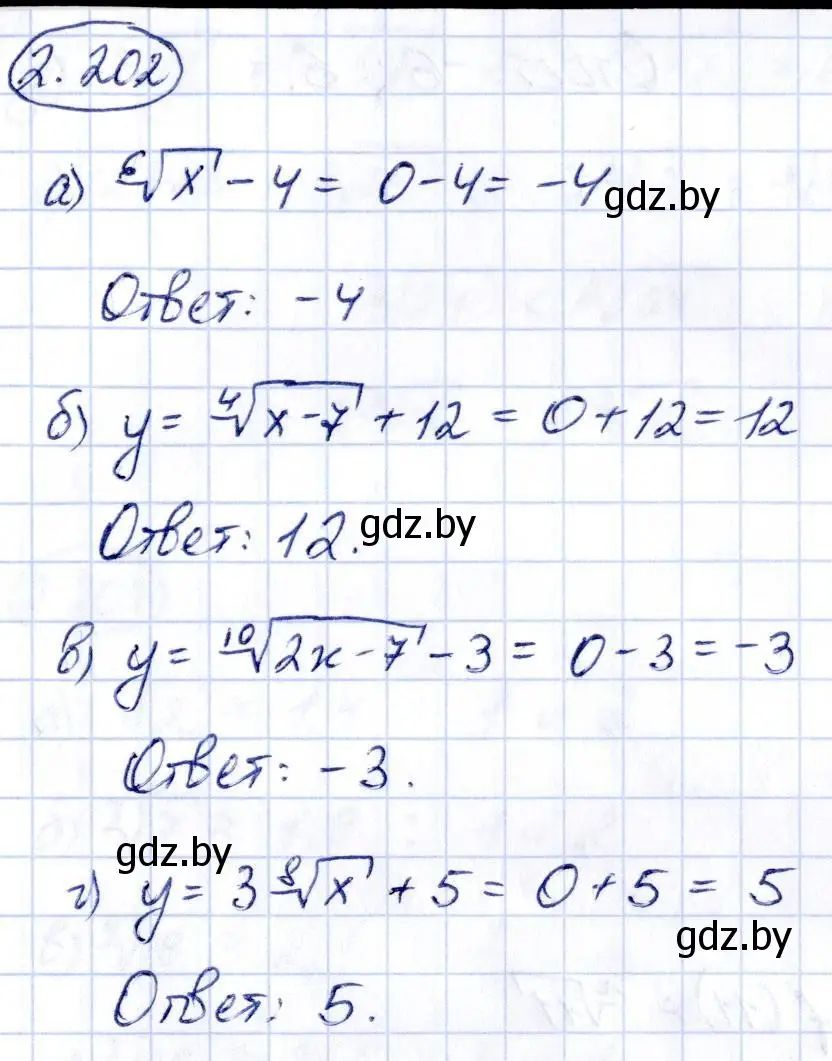 2.202
а) ⁶√x - 4 = 0 - 4 = -4
gdz.by
Ответ: -4
б) y = ⁴√(x - 7) + 12 = 0 + 12 = 12
Ответ: 12.
gdz.by
в) y = ¹⁰√(2x - 7) - 3 = 0 - 3 = -3
Ответ: -3.
gdz.by
г) y = 3 ⁸√x + 5 = 0 + 5 = 5
gdz.by
Ответ: 5.